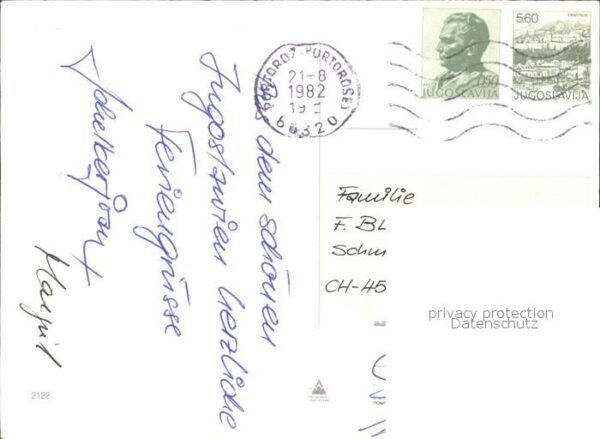 Aus dem schönen
Jugoslawien herzliche
Feriengrüsse
Margrit
PORTOROŽ-PORTOROSE
21-8
1982
19
66320
JUGOSLAVIJA
5.60
JUGOSLAVIJA
Familie
F. BL
Schm
CH-45
privacy protection
Datenschutz
2122